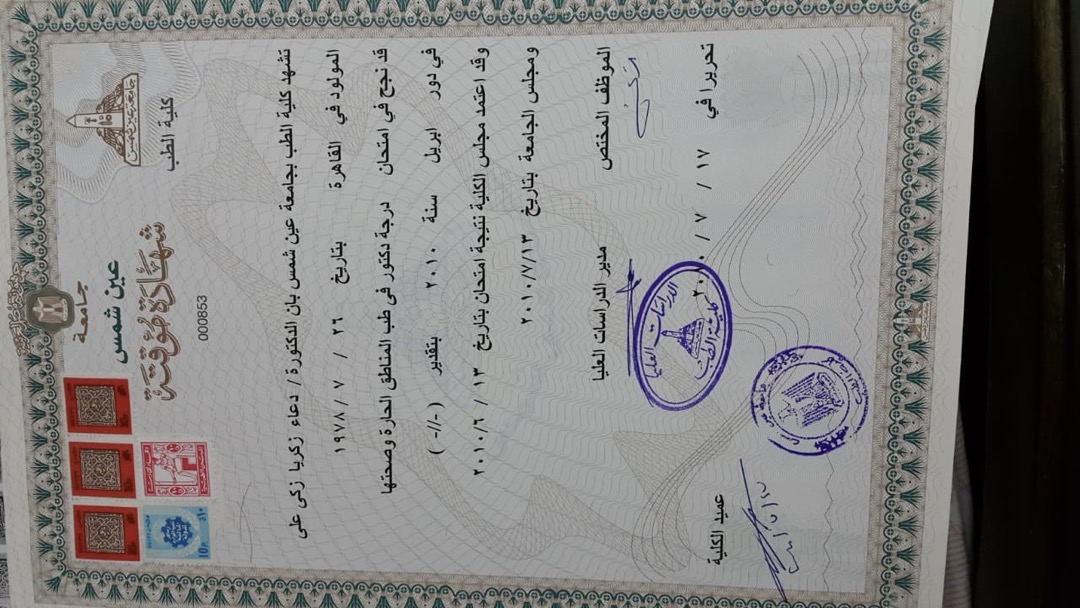 جامعة
عين شمس
كلية الطب
شهادة مؤقتة
000853
تشهد كلية الطب بجامعة عين شمس بان الدكتورة / دعاء زكريا زكى على
المولود في القاهرة بتاريخ ٢٦ / ٧ / ١٩٧٨
قد نجح في امتحان درجة دكتور فى طب المناطق الحارة وصحتها
في دور ابريل سنة ٢٠١٠ بتقدير ( -//- )
وقد اعتمد مجلس الكلية نتيجة امتحان بتاريخ ١٣ / ٦/ ٢٠١٠
ومجلس الجامعة بتاريخ ٢٠١٠/٧/١٣
الموظف المختص مدير الدراسات العليا عميد الكلية
تحريرا في ١٧ / ٧ /
الدراسات العليا
كلية الطب
15 P.